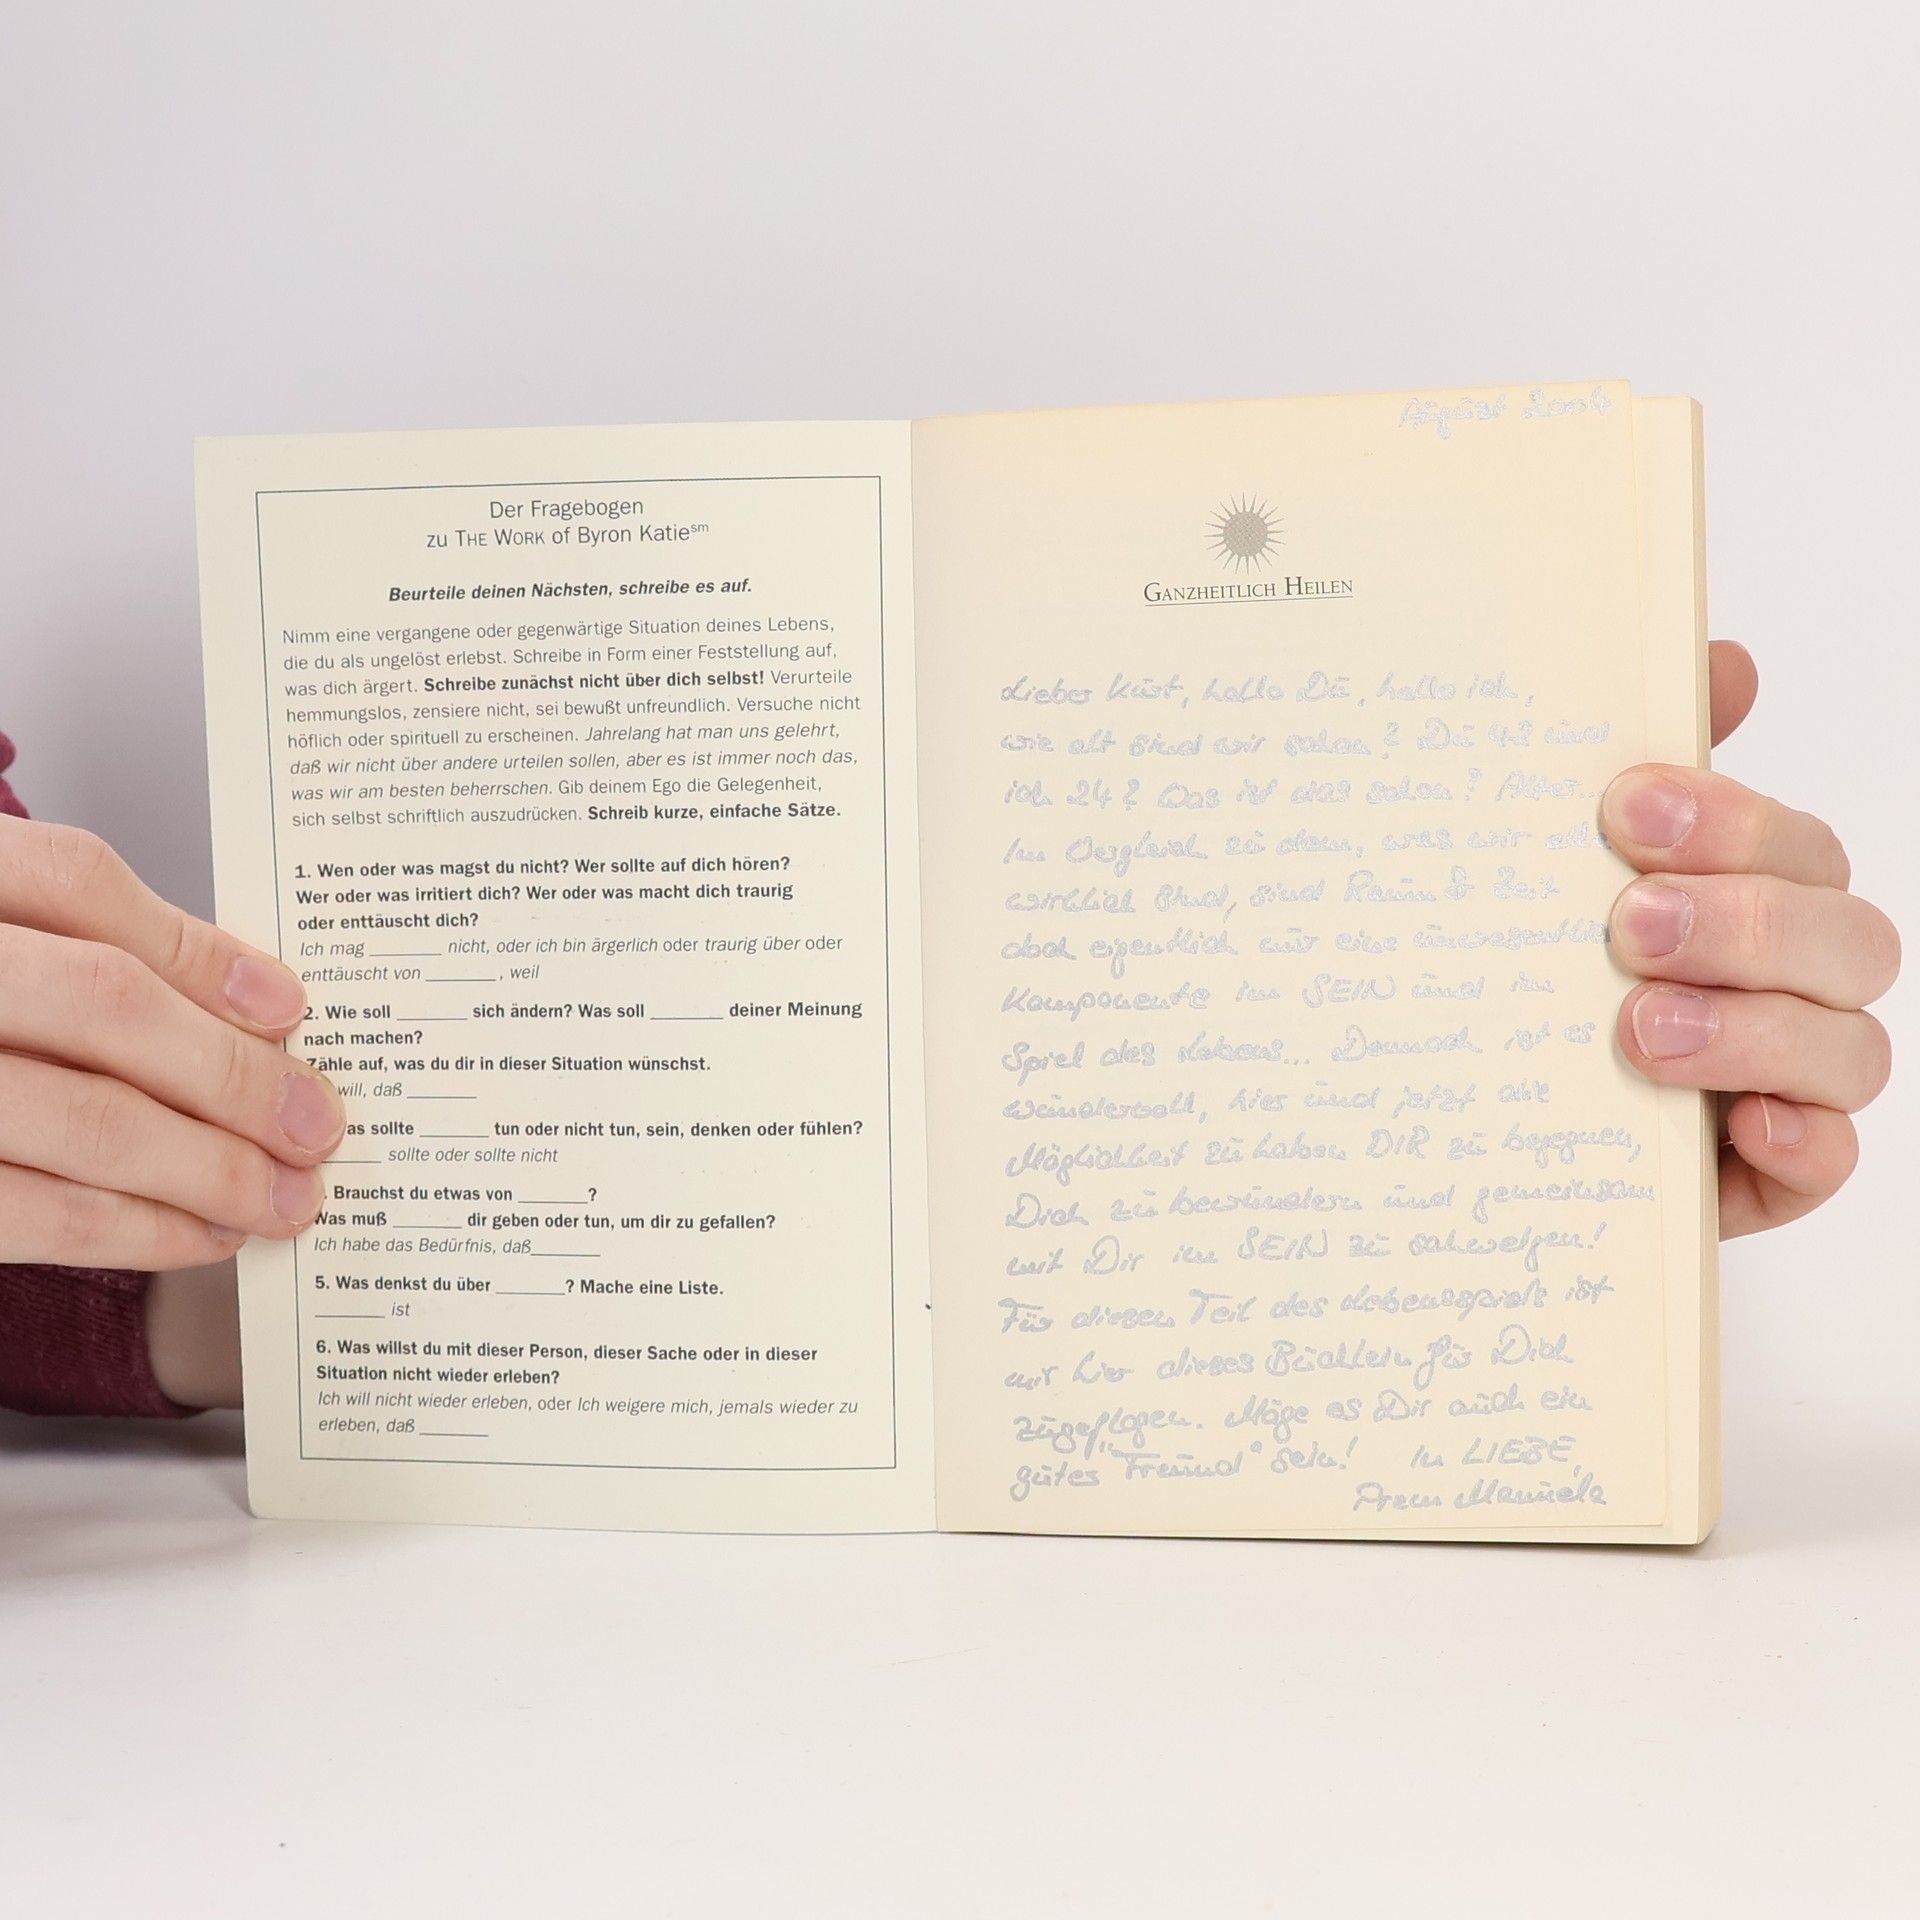 Der Fragebogen
zu THE WORK of Byron Katie℠
Beurteile deinen Nächsten, schreibe es auf.
Nimm eine vergangene oder gegenwärtige Situation deines Lebens,
die du als ungelöst erlebst. Schreibe in Form einer Feststellung auf,
was dich ärgert. Schreibe zunächst nicht über dich selbst! Verurteile
hemmungslos, zensiere nicht, sei bewußt unfreundlich. Versuche nicht
höflich oder spirituell zu erscheinen. Jahrelang hat man uns gelehrt,
daß wir nicht über andere urteilen sollen, aber es ist immer noch das,
was wir am besten beherrschen. Gib deinem Ego die Gelegenheit,
sich selbst schriftlich auszudrücken. Schreib kurze, einfache Sätze.
1. Wen oder was magst du nicht? Wer sollte auf dich hören?
Wer oder was irritiert dich? Wer oder was macht dich traurig
oder enttäuscht dich?
Ich mag _______ nicht, oder ich bin ärgerlich oder traurig über oder
enttäuscht von _______, weil
2. Wie soll _______ sich ändern? Was soll _______ deiner Meinung
nach machen?
Zähle auf, was du dir in dieser Situation wünschst.
will, daß _______
as sollte _______ tun oder nicht tun, sein, denken oder fühlen?
_______ sollte oder sollte nicht
. Brauchst du etwas von _______?
Was muß _______ dir geben oder tun, um dir zu gefallen?
Ich habe das Bedürfnis, daß_______
5. Was denkst du über _______? Mache eine Liste.
_______ ist
6. Was willst du mit dieser Person, dieser Sache oder in dieser
Situation nicht wieder erleben?
Ich will nicht wieder erleben, oder Ich weigere mich, jemals wieder zu
erleben, daß _______
August 2004
GANZHEITLICH HEILEN
Lieber Kurt, hallo Du, hallo ich,
wie alt sind wir schon? Du 42 und
ich 24? Was ist das schon? Alter...
Im Vergleich zu dem, was wir alle
wirklich sind, sind Raum & Zeit
doch eigentlich nur eine
Komponente im SEIN und im
Spiel des Lebens... Dennoch ist es
wundervoll, hier und jetzt die
Möglichkeit zu haben DIR zu begegnen,
Dich zu bewundern und gemeinsam
mit Dir im SEIN zu schwelgen!
Für diesen Teil des Lebensspiels ist
mir hier dieses Büchlein für Dich
zugeflogen. Möge es Dir auch ein
gutes "Freund" sein! In LIEBE,
Prem Manuela